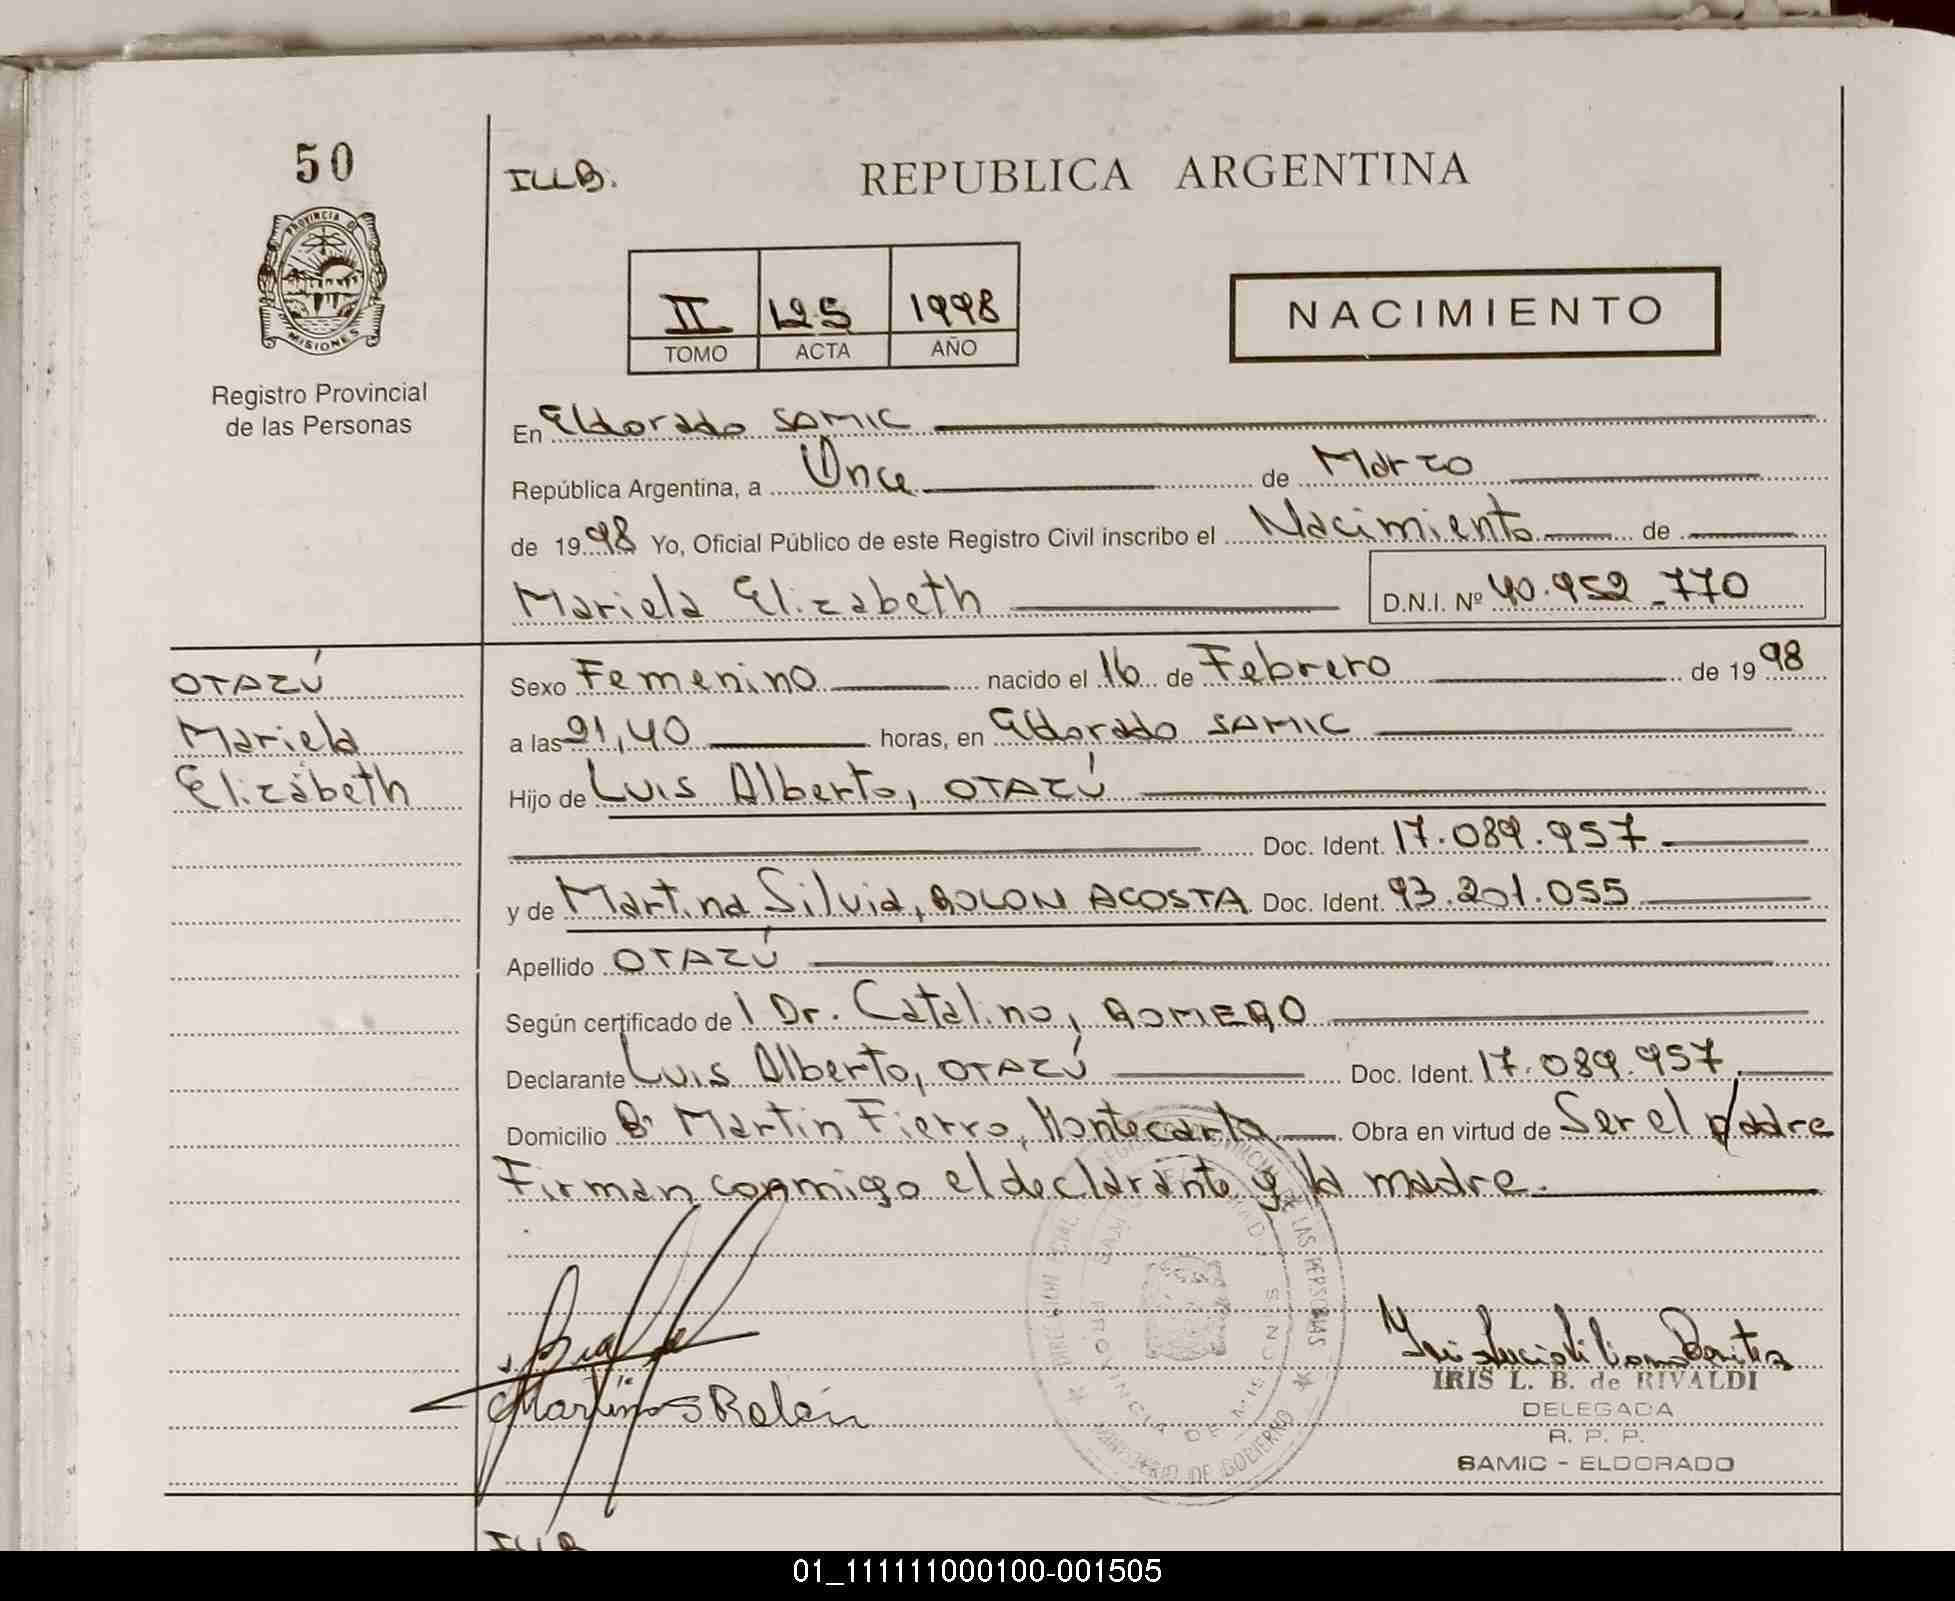 50
ILLB.
REPUBLICA ARGENTINA
PROVINCIA D
MISIONES
Registro Provincial
de las Personas
II 125 1998
TOMO ACTA AÑO
NACIMIENTO
En Eldorado SAMIC
República Argentina, a Once de Marzo
de 1998 Yo, Oficial Público de este Registro Civil inscribo el Nacimiento de
Mariela Elizabeth D.N.I. Nº 40.952_770
OTAZÚ
Mariela
Elizabeth
Sexo Femenino nacido el 16 de Febrero de 1998
a las 21,40 horas, en Eldorado SAMIC
Hijo de Luis Alberto, OTAZÚ
Doc. Ident. 17.089.957
y de Martina Silvia, ROLON ACOSTA Doc. Ident. 93.201.055
Apellido OTAZÚ
Según certificado de l Dr. Catalino, ROMERO
Declarante Luis Alberto, OTAZÚ Doc. Ident. 17.089.957
Domicilio Bº Martin Fierro, Montecarlo Obra en virtud de Ser el padre
Firman conmigo el declarante y la madre.
PROVINCIA DE MISIONES
MINISTERIO DE GOBIERNO
Martina S Rolón
IRIS L. B. de RIVALDI
DELEGADA
R. P. P.
SAMIC - ELDORADO
01_111111000100-001505